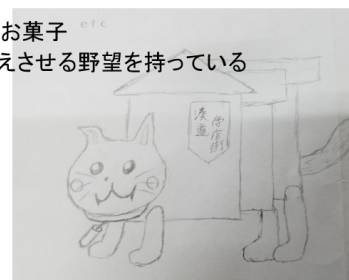 お菓子
etc
えさせる野望を持っている
湊道
商店街